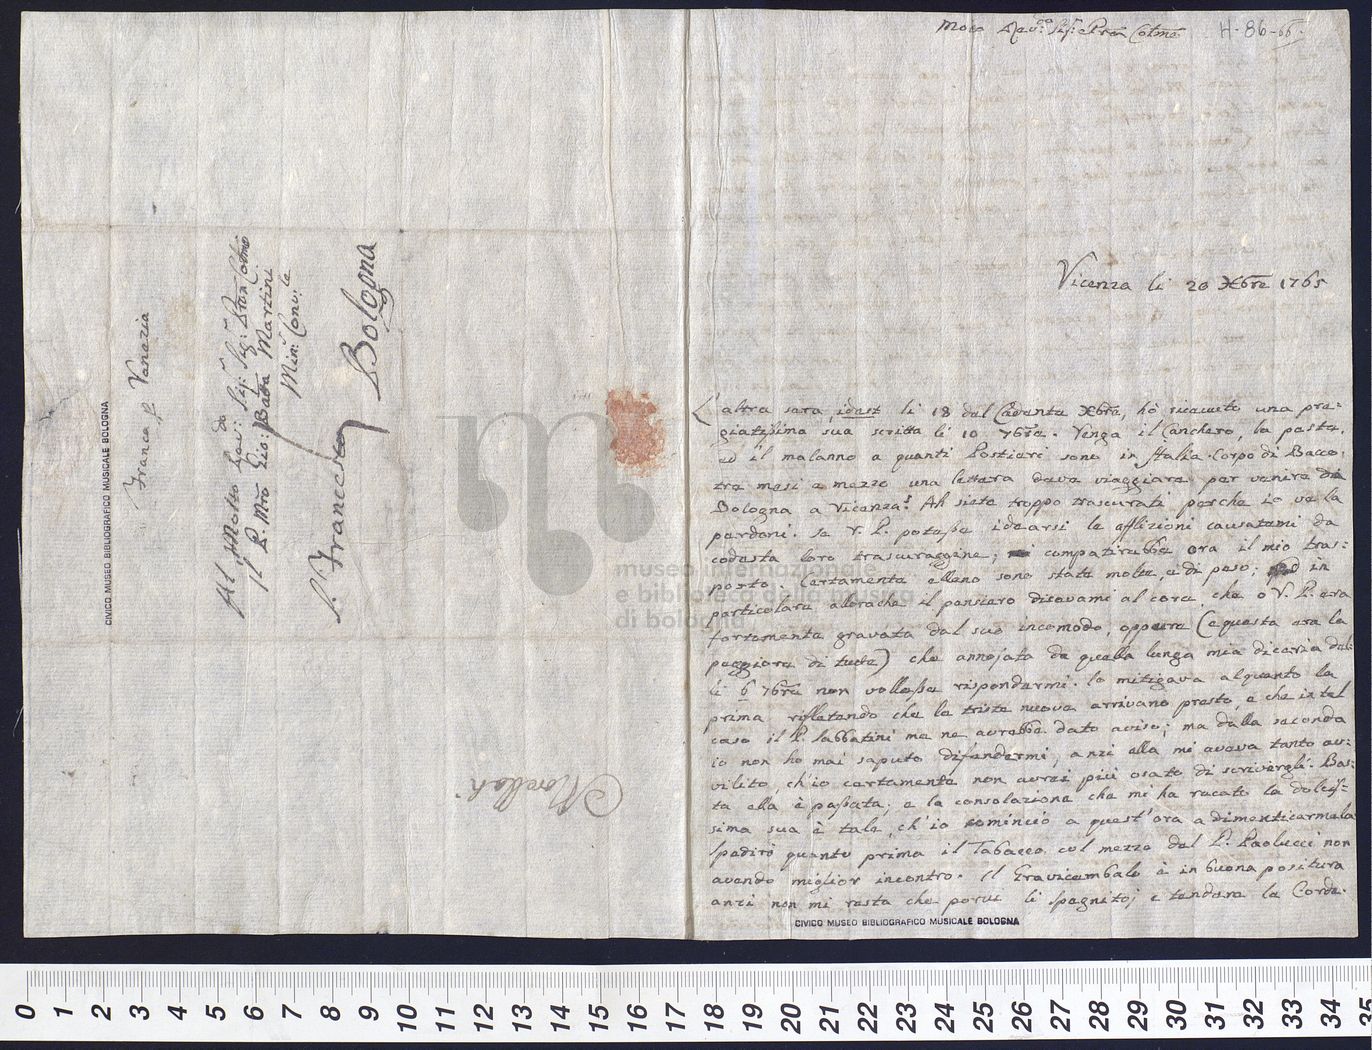 Franca p Venezia
Al Molto Revdo: Sigr: Sig: Pron Colmo
Il P. Mro Gio: Batta Martini
Min: Conv:le
S. Francesco
Bologna
CIVICO MUSEO BIBLIOGRAFICO MUSICALE BOLOGNA
Molto Revdo: Sigr: e Pron Colmo H-86-66.
Vicenza li 20 Xbre 1765
L'altra sera, idest li 18 del Cadente Xbre, hò ricevuto una pre=
giatissima sua scritta li 10 7bre. Venga il Canchero, la peste,
ed il malanno a quanti Postieri sono in Italia. Corpo di Bacco,
tre mesi e mezzo una lettera deve viaggiare per venire da
Bologna a Vicenza! Ah siete troppo trascurati perche io ve la
perdoni. Se V. P. potesse idearsi le afflizioni causatemi da
codesta loro trascuraggine; compatirebbe ora il mio tras=
porto. Certamente elleno sono state molte, e di peso; ed in
particolare allorache il pensiero dicevami al core, che o V. P. era
fortemente gravata dal suo incomodo, oppure (e questa era la
peggiore di tutte) che annojata da quella lunga mia diceria del=
li 6 7bre non vollesse rispondermi. Io mitigava alquanto la
prima, rifletendo che le triste nuove arrivano presto, e che in tal
caso il P. Sabbatini me ne avrebbe dato aviso; ma dalla seconda
io non ho mai saputo difendermi, anzi ella mi aveva tanto av=
vilito, ch'io certamente non avrei più osato di scrivergli. Bas=
ta ella è passata; e la consolazione che mi ha recato la dolcis=
sima sua è tale, ch'io comincio a quest'ora a dimenticarmela
Spedirò quanto prima il Tabacco col mezzo del P. Paolucci non
avendo miglior incontro. Il Gravicembalo è in buona positura
anzi non mi resta che porvi li Spagnito; e tendere le Corde.
CIVICO MUSEO BIBLIOGRAFICO MUSICALE BOLOGNA
museo internazionale
e biblioteca della musica
di bologna
0 1 2 3 4 5 6 7 8 9 10 11 12 13 14 15 16 17 18 19 20 21 22 23 24 25 26 27 28 29 30 31 32 33 34 35